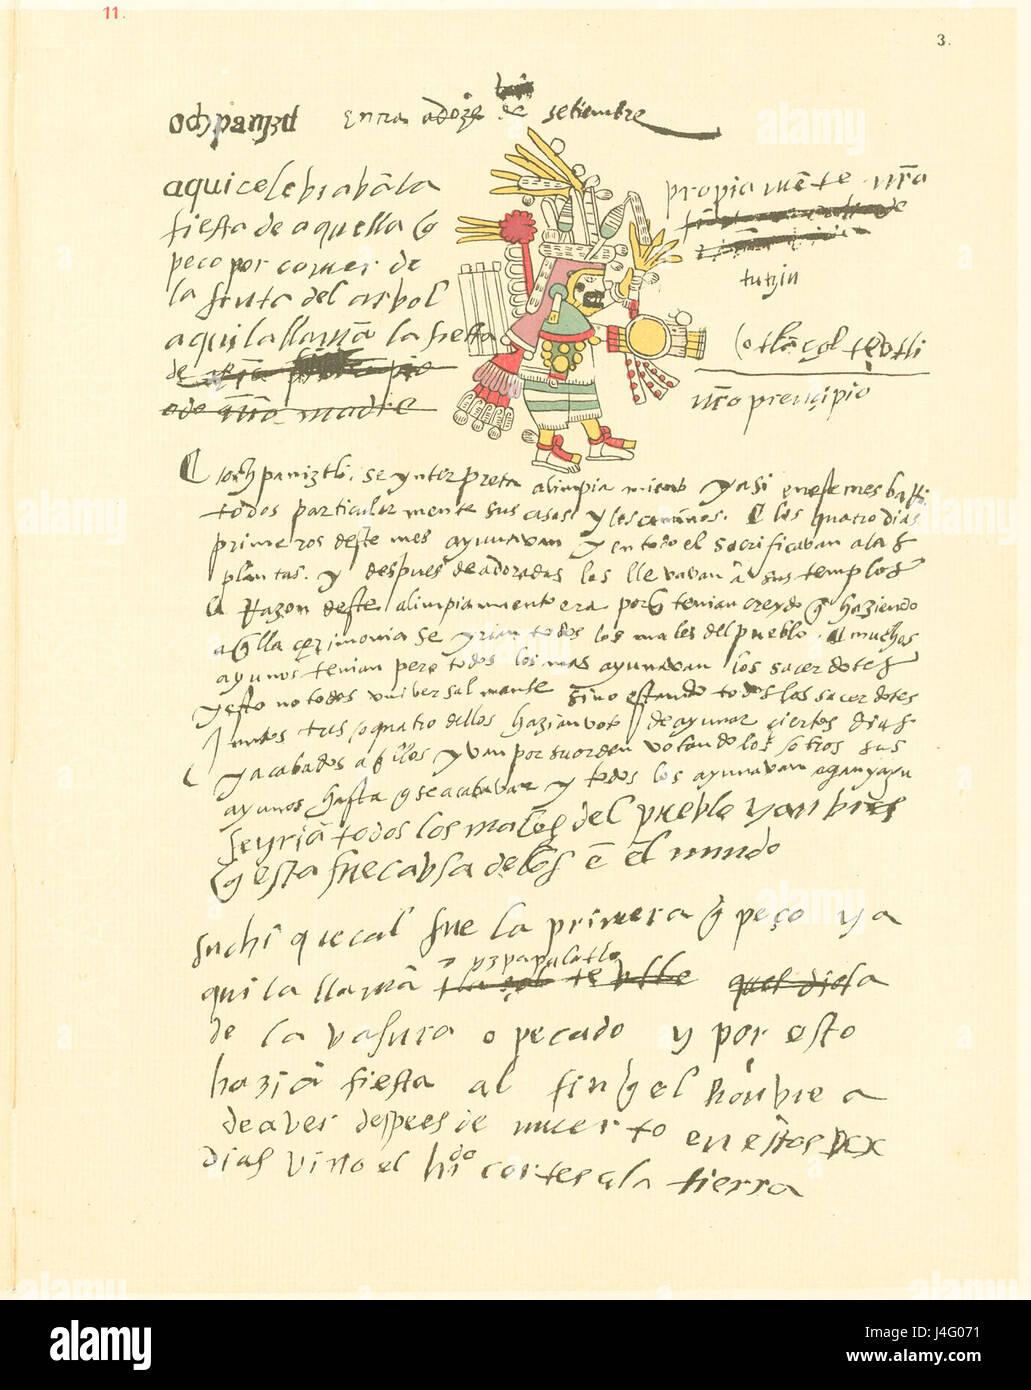 11.
3.
ochpanizd entra adoze de setiembre
aqui celebrabã la
fiesta de aquella q̃
peco por comer de
la fruta del arbol
aqui la llamã la fiesta
de
o de nr̃a madre
propiamẽte nr̃a
tutzin
nr̃o prençipio
ochpaniztli. se ynterpreta alimpiamiento y asi en este mes
todos particularmente sus casas y los caminos. los quatro dias
primeros deste mes ayunavan y en todo el sacrificavan a las
plantas. y despues de adoradas los llevavan â sus templos
la Razon deste alimpiamiento era porq̃ tenian creydo q̃ haziendo
aq̃lla çerimonia se yrian todos los males del pueblo. muchos
ayunos tenian pero todos los mas ayunavan los sacerdotes
y esto no todos universalmente sino estando todos los sacerdotes
juntos tres o quatro dellos hazian voto de ayunar çiertos dias
y acabados aq̃llos yvan por su orden votando los otros sus
ayunos hasta q̃ se acabavan y todos los ayunavan
se yriã todos los males del pueblo
q̃ esta fue causa de ẽ el mundo
suchiquecal fue la primera q̃ peço y a
yzpapalotle
qui la llamã
de la vasura o pecado y por esto
haziã fiesta al fin q̃ el hõnbre a
de aver despues de muerto en estos
dias vino el hdo cortes a la tierra
alamy
Image ID: J4G071
www.alamy.com